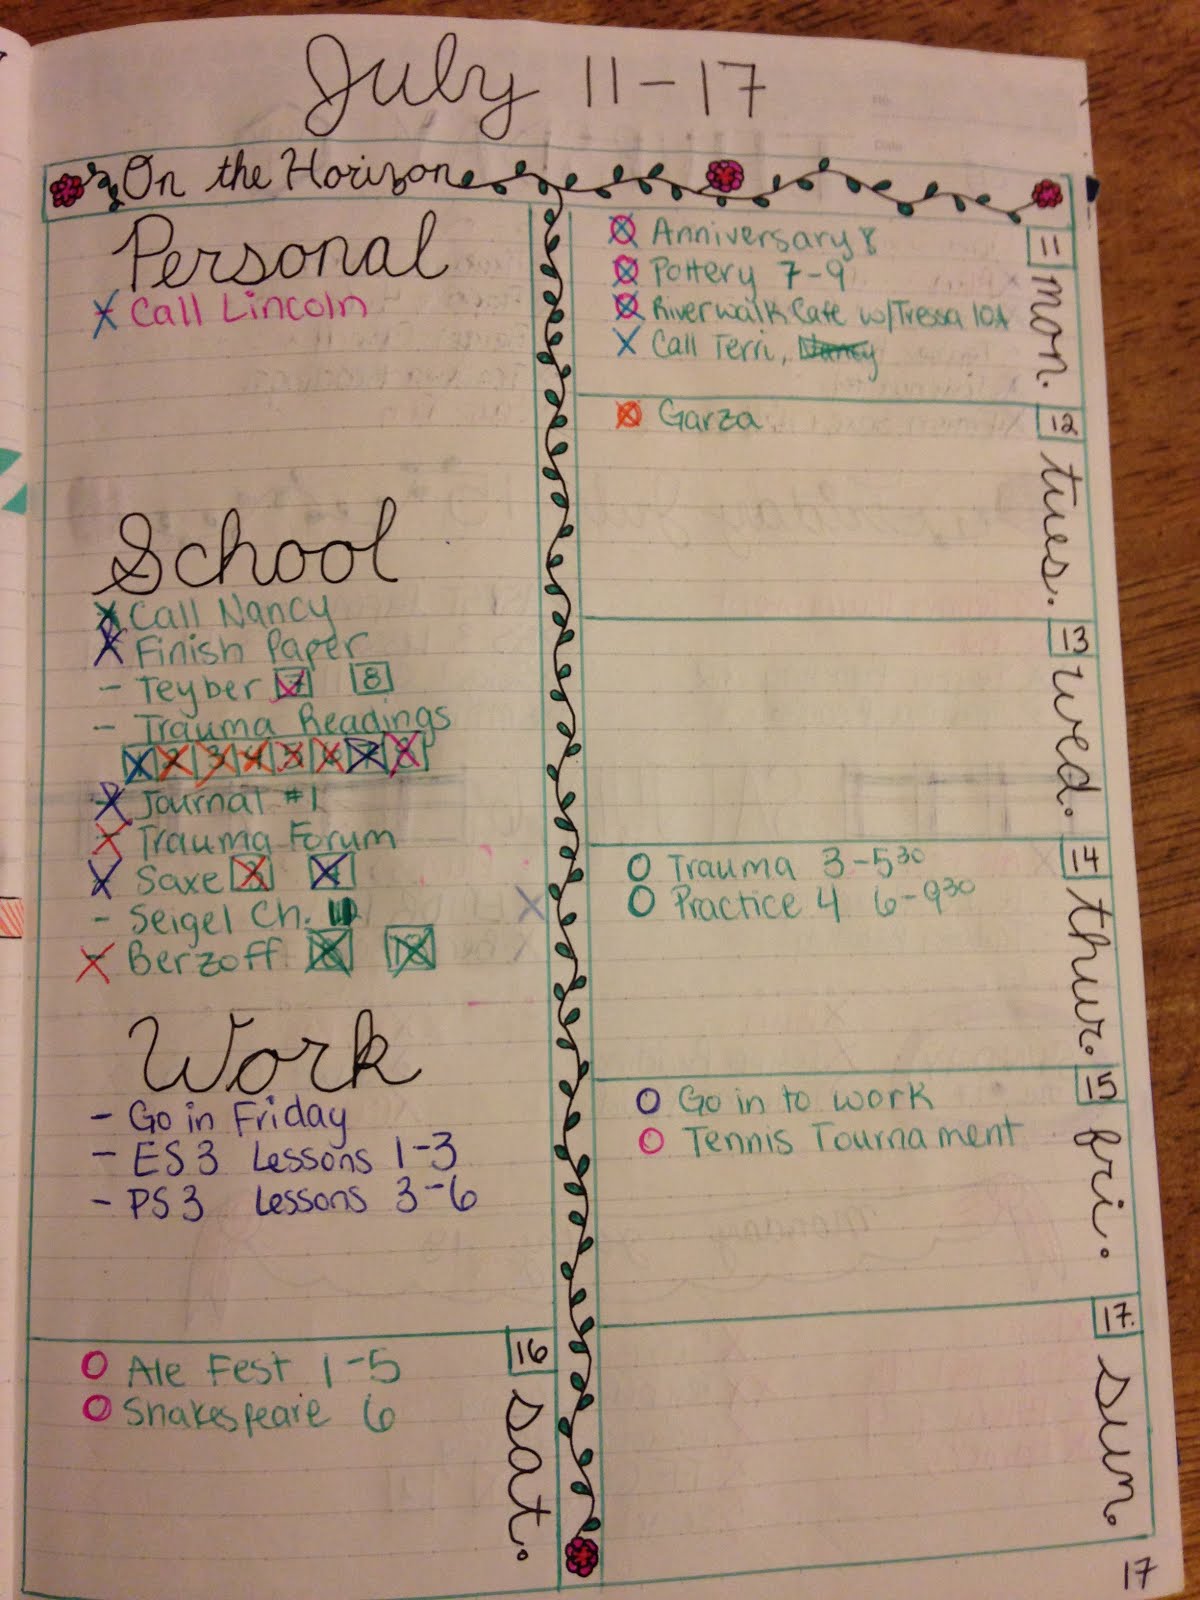 July 11-17
On the Horizon
Personal
X Call Lincoln
School
X Call Nancy
X Finish Paper
- Teyber 7 8
- Trauma Readings
1 2 3 4 5 6 7 8
X Journal #1
X Trauma Forum
X Saxe 3 4
- Seigel Ch.
X Berzoff
Work
- Go in Friday
- ES3 Lessons 1-3
- PS3 Lessons 3-6
16 sat.
Ale Fest 1-5
Shakespeare 6
11 mon.
Anniversary 8
Pottery 7-9
Riverwalk Cafe w/Tressa 10A
X Call Terri, Nancy
12 tues.
Garza
13 wed.
14 thur.
Trauma 3-5³⁰
Practice 4 6-9³⁰
15 fri.
Go in to work
Tennis Tournament
17. sun.
17